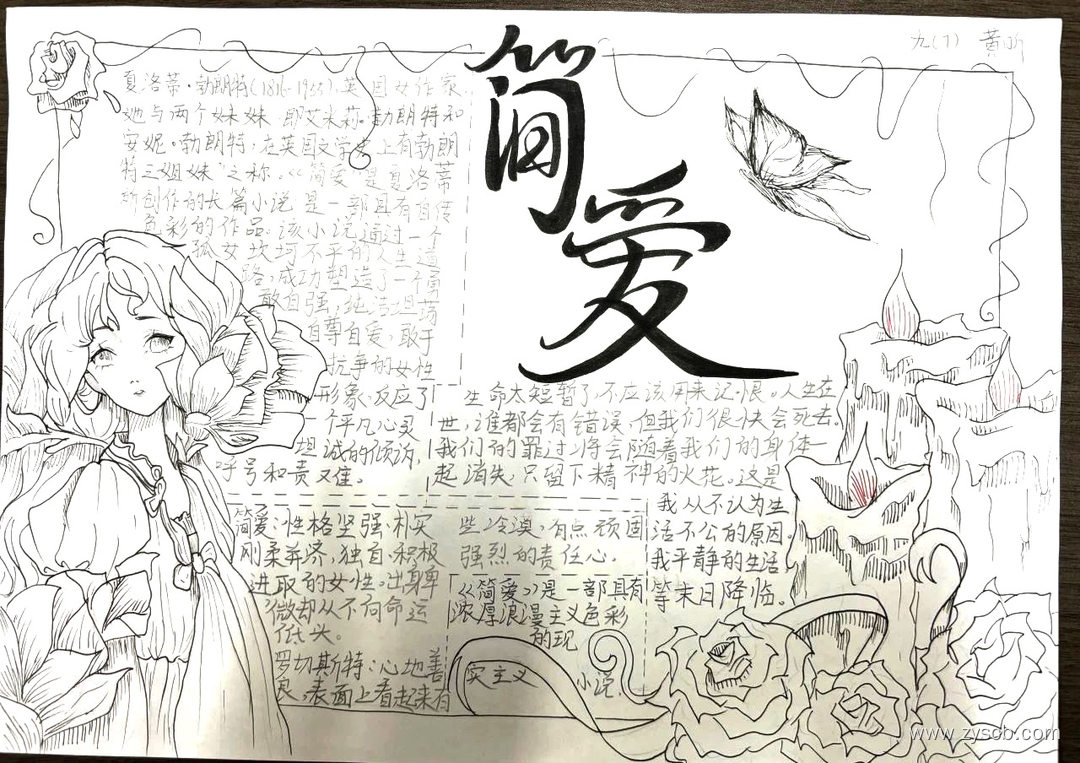 九(7) 黄昕
简爱
夏洛蒂·勃朗特(1816-1955)英国女作家
她与两个妹妹,即艾米莉·勃朗特和
安妮·勃朗特,在英国文学史上有勃朗
特三姐妹”之称。《简爱》是夏洛蒂
所创作的长篇小说 是一部具有自传
色彩的作品。该小说通过一个
孤女坎坷不平的人生道
路,成功塑造了一个勇
敢自强,纯洁坦荡
自尊自爱,敢于
抗争的女性
形象,反应了
一个平凡心灵
坦诚的倾诉,
呼号和责义准。
生命太短暂了,不应该用来记恨。人生在
世,谁都会有错误,但我们很快会死去。
我们的罪过将会随着我们的身体一
起消失,只留下精神的火花。这是
我从不认为生
活不公的原因,
我平静的生活
等末日降临。
简爱:性格坚强,朴实
刚柔并济,独自,积极
进取的女性。出身卑
微却从不向命运
低头。
罗切斯特:心地善
良,表面上看起来有
些冷漠,有点顽固
强烈的责任心。
《简爱》是一部具有
浓厚浪漫主义色彩
的现
实主义 小说。
www.zyscb.com